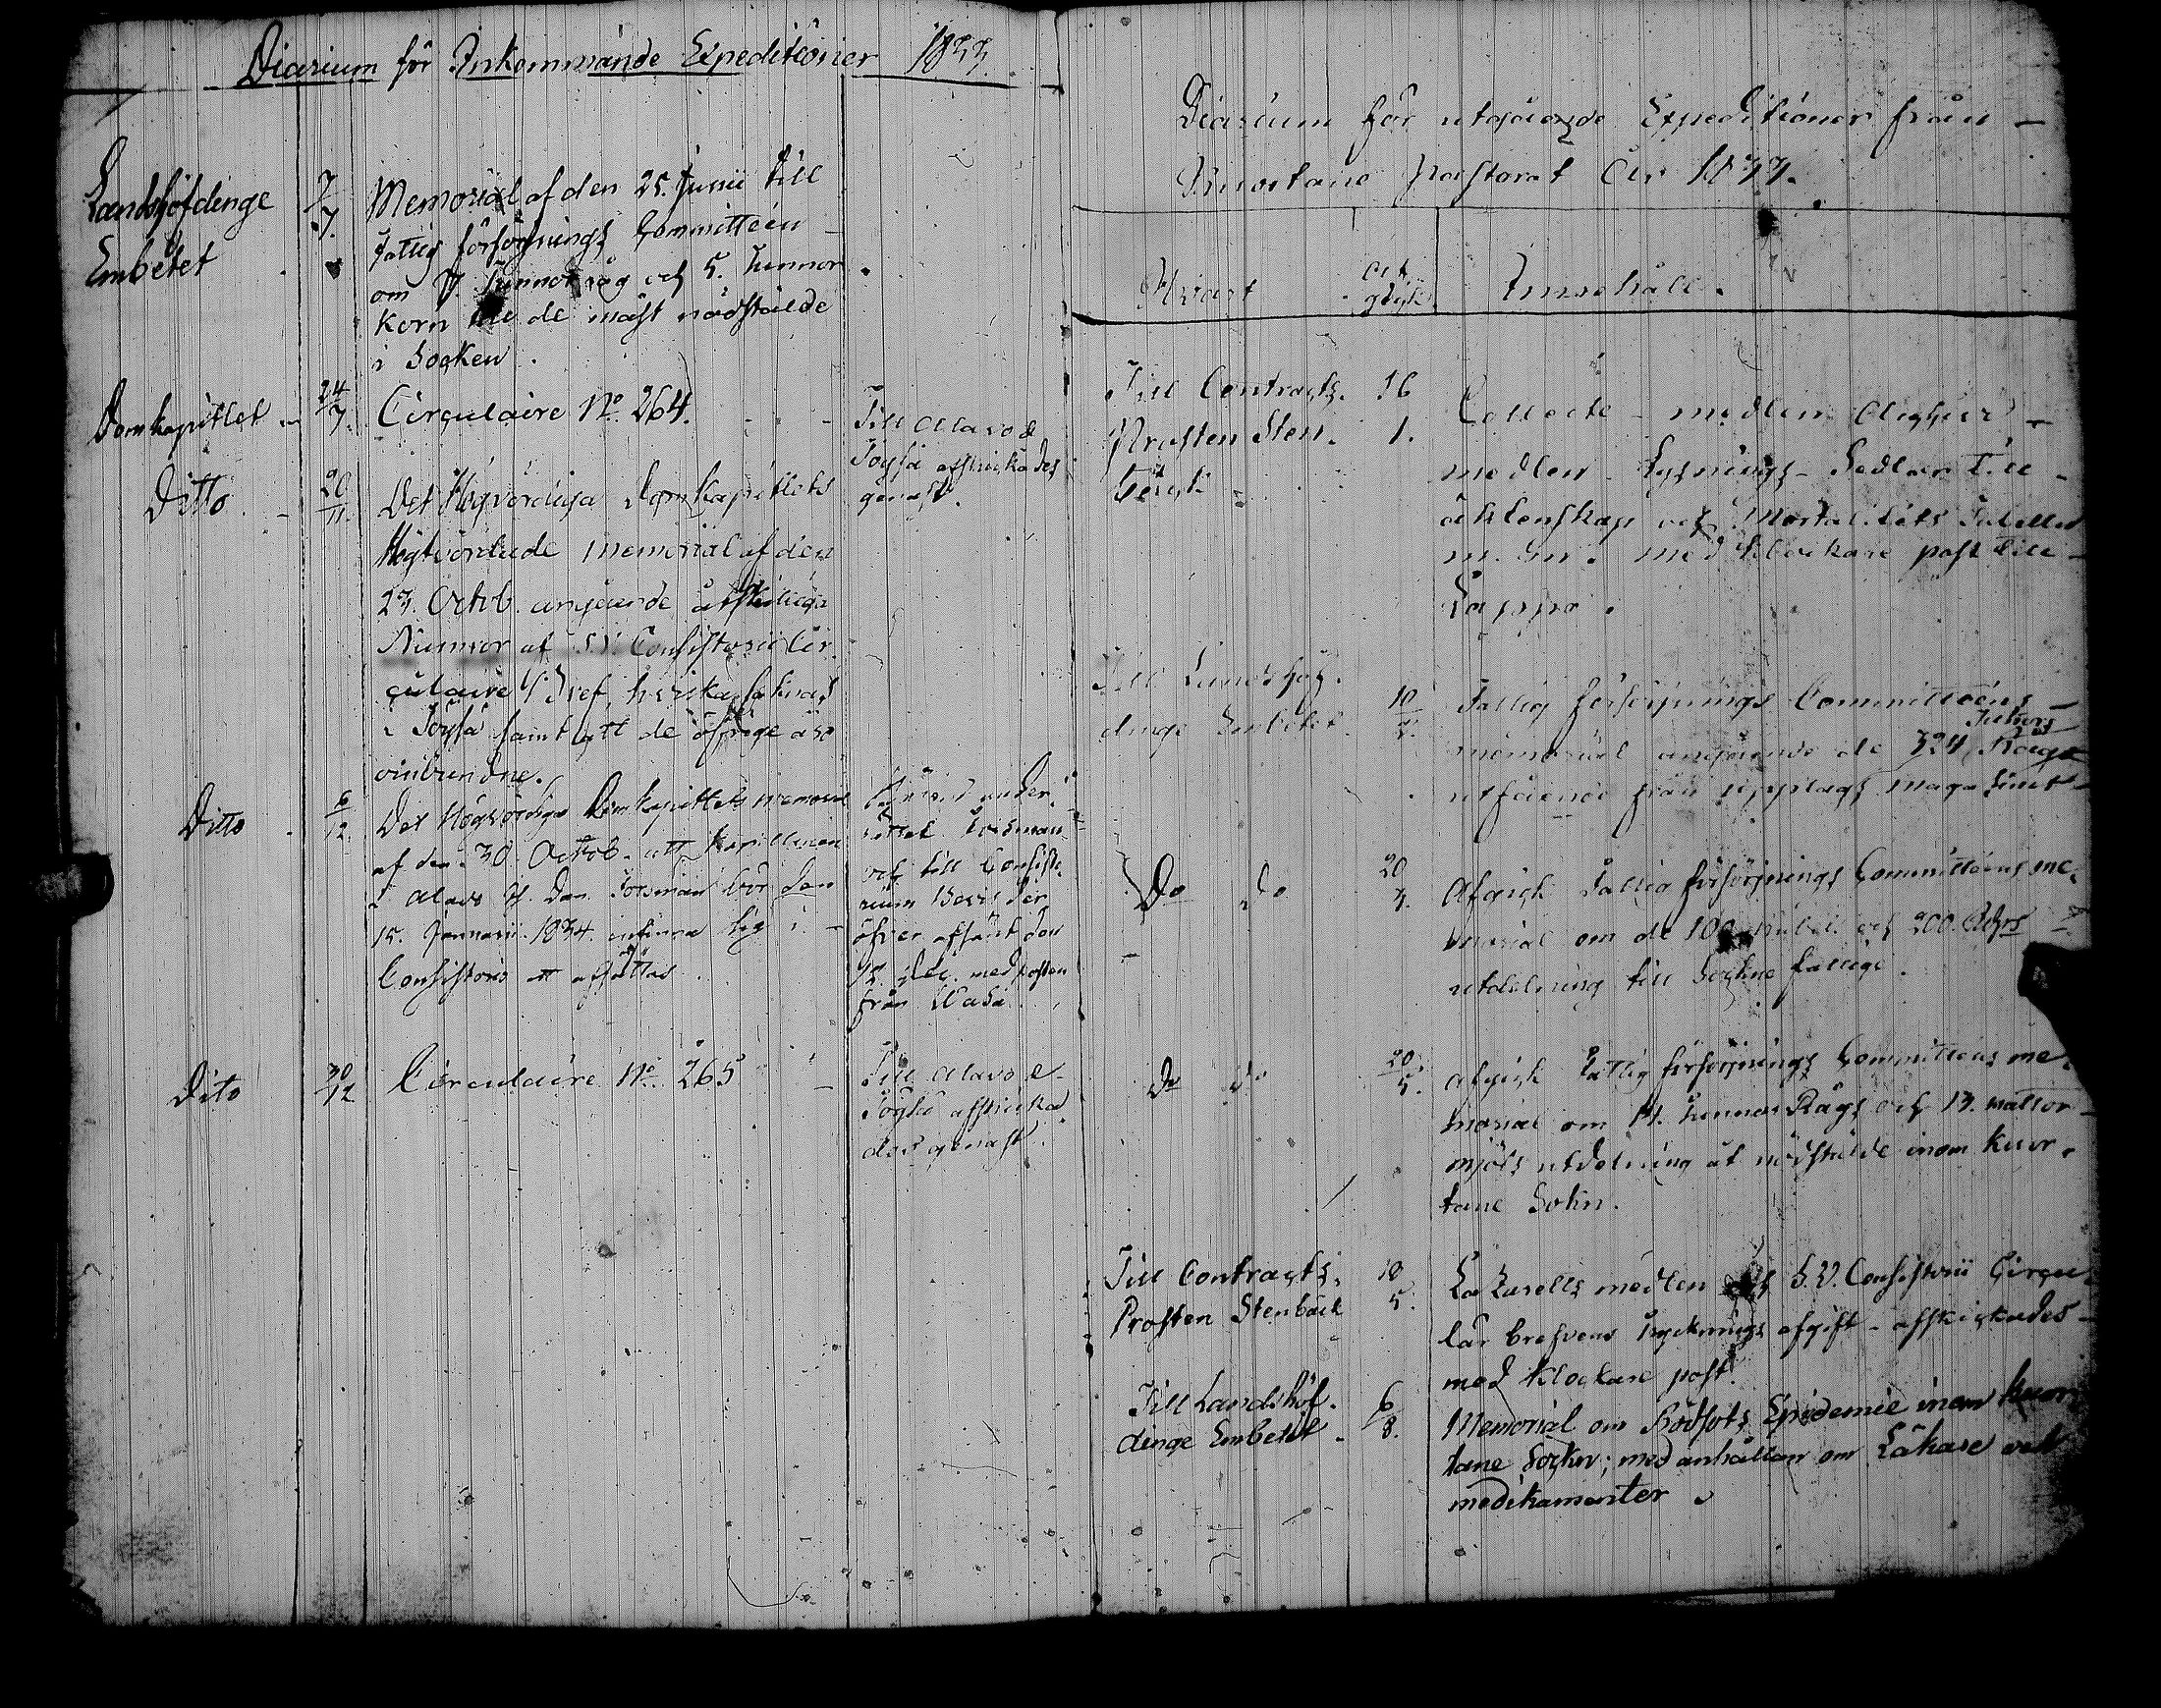 Diarium för Inkommande Expeditioner 1833.
Landshöfdinge
Embetet
7/7.
Memorial af den 25. Junii till
Fattig försörjnings Committéen
om 7. Tunnor råg och 5. tunnor
Korn till de mäst nödstälde
i Socken.
Domkapitlet
24/7.
Circulaire No 264.
Till Alavo &
Töysä affskickades
genast.
Ditto
20/11.
Det Högvördiga DomKapitlets
Högtvördade memorial af den
23. Octob. angående åtskilliga
Numror af V. Consistorii Cir-
culaire Bref, hvilka saknas
i Töysä samt att de öfrige äro
oinbundne.
Ditto
6/12.
Det Högvördiga Domkapitlets memorial
af den 30. Octob. att Kapellanen
i Alavo H. Dan. Forsman bör den
15. Januarii 1834. infinna sig i
Consistorio
under-
rättad Forsman
och till Consisto-
rium Bevis der
öfver afsändt den
dec. med posten
från Wasa.
Dito
30/12
Circulaire No. 265
Till Alavo &
Töysä affskicka
des genast.
Diarium för utgående Expeditioner från
Kuortane Pastorat År 1833.
Hvart
Af
gick
Innehåll.
Till Contracts
Prosten Sten-
bäck
16
1.
Collecte - medlen
medlen Lysnings- Sedlar till
äktenskap och Mortalitets Tabeller
m. m. med Klockare post till
Lappo.
Till Landshöf-
dinge Embetet
10
Fattig försörjnings Committéens
memorial angående de 324 Råga
utfående från upplags magasinet
Do do
20
3.
Afgick Fattig försörjnings Committéens me-
morial om de 100 rubel och 200.
utdelning till Sockne fattige.
Do do
20
5.
Afgick Fattig försörjnings Committéens me-
morial om 14. tunnor Rågs och 13. mattor
mjöls utdelning åt nödstälde inom Kuor-
tane Sokn.
Till Contracts
Prosten Stenbäck
18
5.
Lazaretts medlen och S. V. Consistorii Circu-
lär brefvens trycknings afgift - affskickades
med Klockare post.
Till Landshöf-
dinge Embetet
6
8.
Memorial om Rödsots Epidemie inom Kuor-
tane Socken; med anhållan om Läkare och
medikamenter.